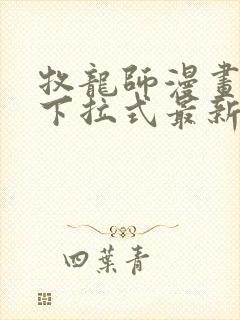 牧龍師漫畫
下拉式最新
四葉青